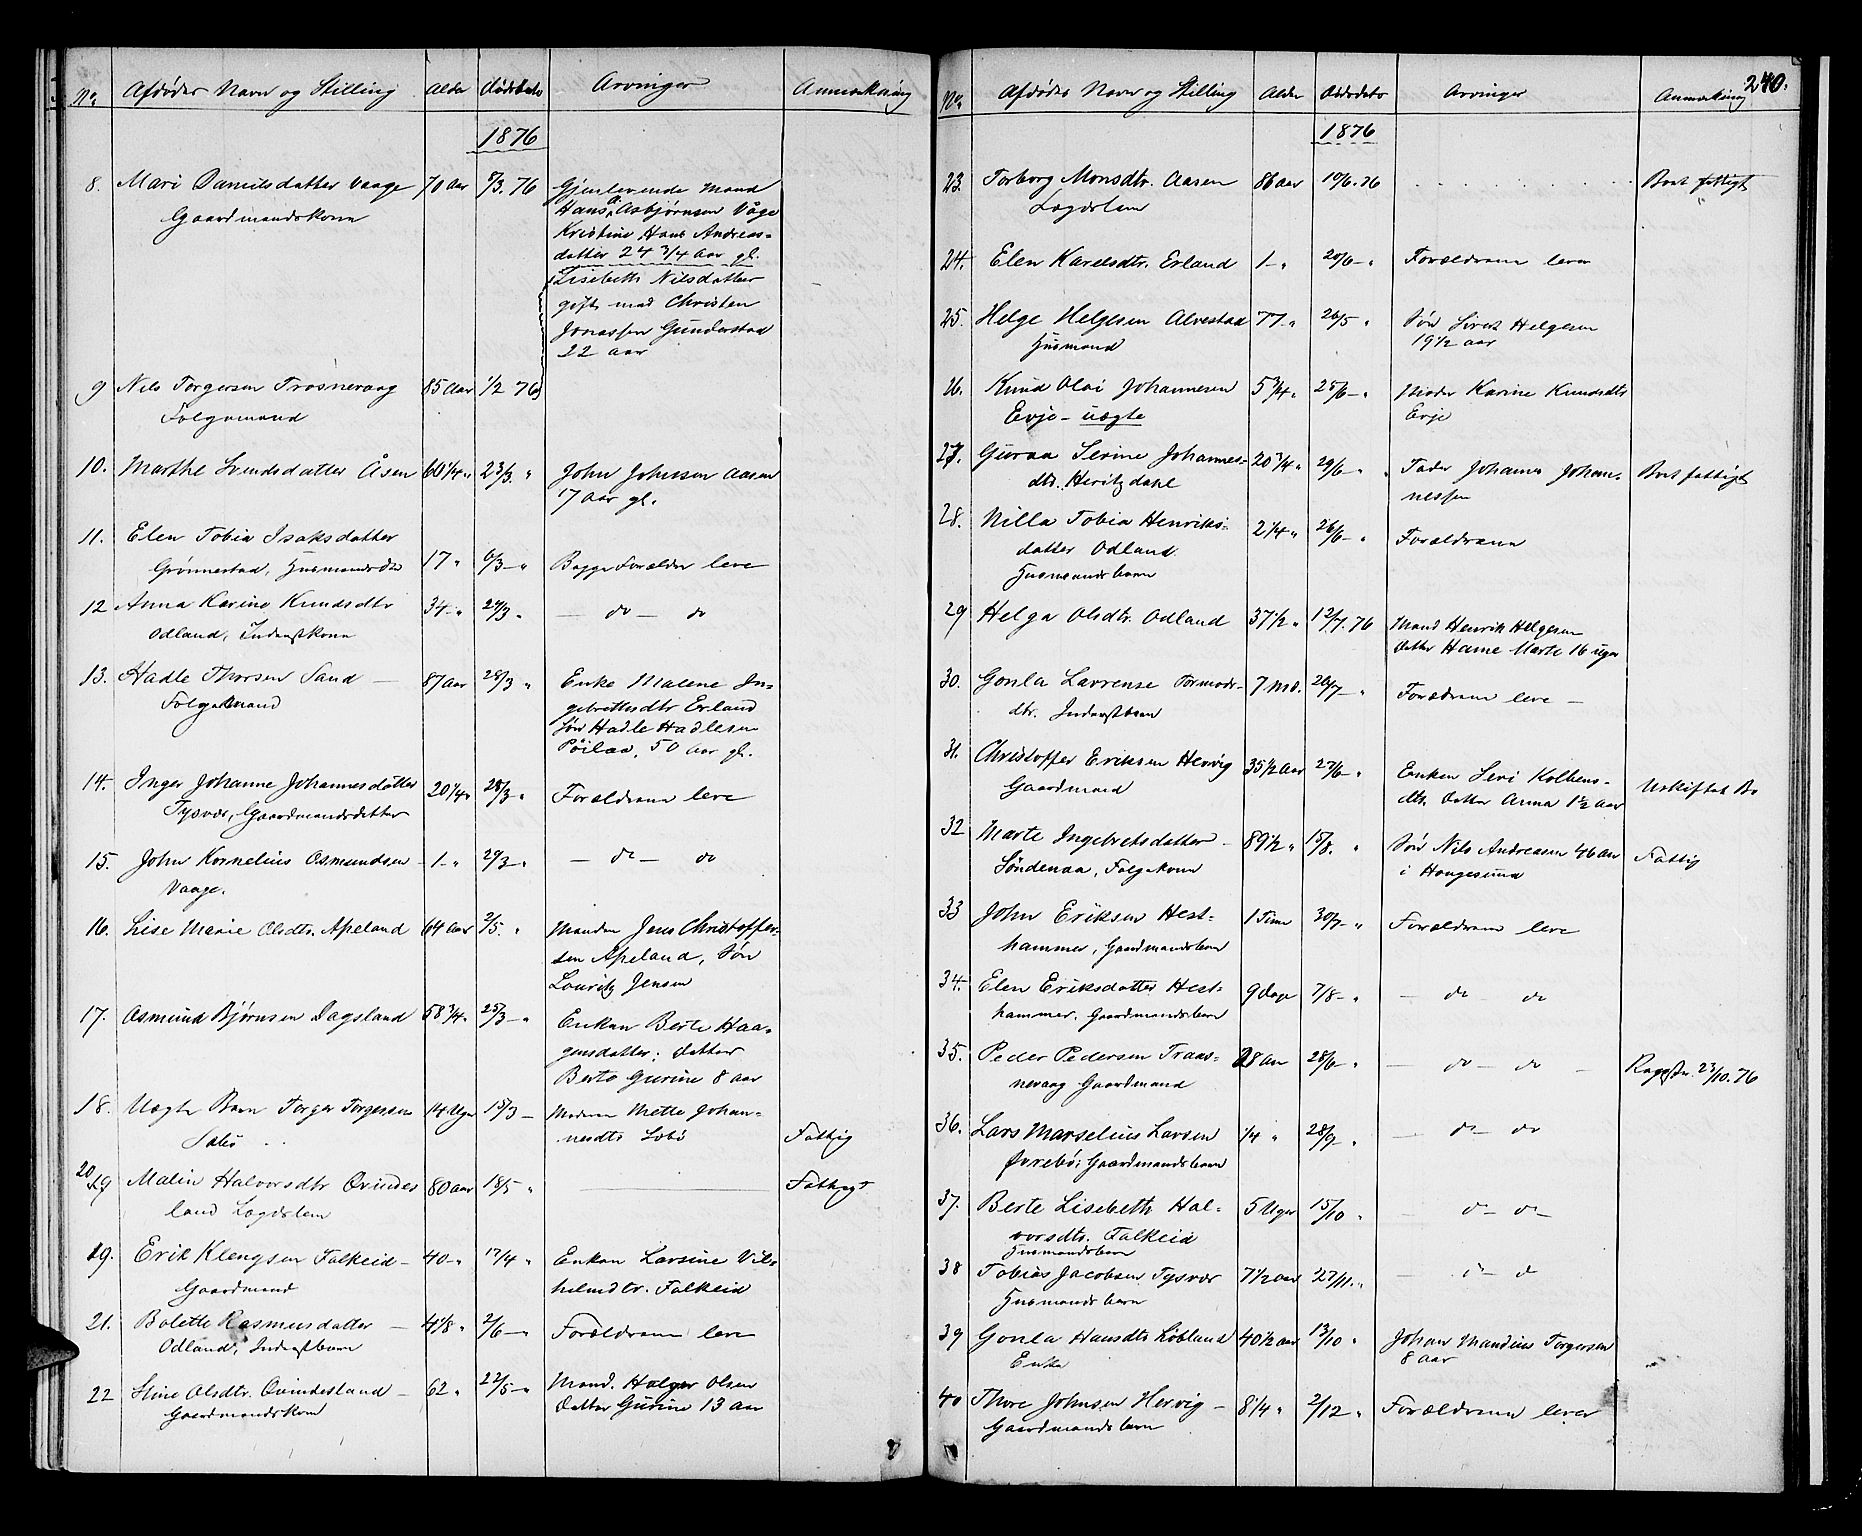 No. Afdødes Navn og Stilling Alder Dødsdato Arvinger Anmerkning
1876
8. Mari Danielsdatter Vaage 70 Aar 8/3. 76 Gjenlevende Mand
Gaardmandskone Hans Asbjørnsen Våge
Kristine Hans Andreas-
datter 24 3/4 Aar gl.
Lisebeth Nilsdatter
gift med Christen
Jonassen Gunderstad
22 aar
9 Nils Torgersen Trosnevaag 85 Aar 1/2 76
Folgemand
10. Marthe Svendsdatter Åsen 60 1/4 " 23/3. " John Johnsen Aasen
17 Aar gl.
11. Elen Tobia Isaksdatter
Grønnestad, Husmandsdtr 17 " 6/3 - " Begge Forældre leve
12 Anna Karine Knudsdtr 34 - " 24/3 " - do - do
Odland, Inderstkone
13. Hadle Thorsen Sand - 87 aar 28/3 " Enke Malene In-
Folgemand gebretsdtr Erland
Søn Hadle Hadlesen
50 aar gl.
14. Inger Johanne Johannesdatter 20 1/4 " 28/3 " Forældrene leve
Tysvær, Gaardmandsdatter
15. John Kornelius Osmundsen 1 - " 29/3 - " - do - do
Vaage.
16. Lise Marie Olsdtr. Apeland 64 aar 2/5. " Manden Jens Christoffer-
sen Apeland, Søn
Lauritz Jensen
17. Osmund Bjørnsen Dagsland 58 3/4 " 25/3 - " Enken Berte Haa-
gensdatter; datter
Berte Gurine 8 aar
18. Uægte Barn Torger Torgersen 14 Uger 15/3 - Moderen Mette Johan-
nesdtr Fattig
20/19 Malin Halvorsdtr Qvindes- 80 aar 18/5 " Fattigt
land Lægdslem
19. Erik Klengsen Falkeid - 40 - " 17/4 " Enken Larsine Vil-
Gaardmand helmdtr. Falkeid
21. Bolette Rasmusdatter - 4 1/8 " 2/6 - " Forældrene leve
Odland, Inderstbarn
22 Stine Olsdtr. Qvindesland - 62 " 22/5 - " Mand. Holger Olsen
Gaardmandskone Datter Gurine 13 aar
240.
No. Afdødes Navn og Stilling Alder Dødsdato Arvinger Anmerkning
1876
23. Torborg Monsdtr. Aasen 86 aar 10/6. 76 Bort fattigt
Lægdslem
24. Elen Karelsdtr. Erland 1 - " 20/6 - " Forældrene lever
25. Helge Helgesen Alvestad 77 - " 26/5 " Søn Sivert Helgesen
Husmand 19 1/2 aar
26. Knud Olai Johannesen 5 3/4 " 25/6 - " Moder Karine Knudsdtr
Evje - uægte Evje
27. Guroa Serine Johannes- 20 3/4 " 29/6 - " Fader Johannes Johan- Bort fattigt
dtr. Heritzdahl nessen
28. Nilla Tobia Henriks- 2 1/4 " 26/6 - " Forældrene
datter Odland
Husmandsbarn
29 Helga Olsdtr. Odland 37 1/2 " 12/7. 76 Mand Henrik Helgesen
datter Hanne Marte 16 uger
30. Gonla Lavrense Tormods- 7 Md. 26/7 - " Forældrene leve -
dtr. Inderstbarn
31. Christoffer Eriksen Hervig 35 1/2 Aar 27/6 - " Enken Siri Kolbens- Uskiftet Bo
Gaardmand dtr. datter Anna 1 1/2 aar
32 Marte Ingebretsdatter - 89 1/2 " 15/8. " Søn Nils Andreasen 46 aar Fattig
Søndenaa, Folgekone i Haugesund
33 John Eriksen Hest- 1 Time 30/7 - " Forældrene leve
hammer, Gaardmandsbarn
34. Elen Eriksdatter Hest- 9 Dage 7/8 - " - do - do
hammer. Gaardmandsbarn
35. Peder Pedersen Traas- 28 Aar 28/6 - " - do - do - 23/10. 76
nevaag Gaardmand
36. Lars Marselius Larsen 1/4 " 28/9 - " - do - do
Øvrebø; Gaardmandsbarn
37. Berte Lisebeth Hal- 5 Uger 15/10 " - do - do -
vorsdtr. Falkeid
Husmandsbarn
38 Tobias Jacobsen Tysvær 7 1/2 aar 27/11. " - d - d
Husmandsbarn
39 Gonla Hansdtr Løbland 40 1/2 aar 13/10 " Johan Mandius Torgersen
Enke 8 aar
40 Thore Johnsen Hervig - 8 1/4 " 2/12 " Forældrene lever
Gaardmandsbarn